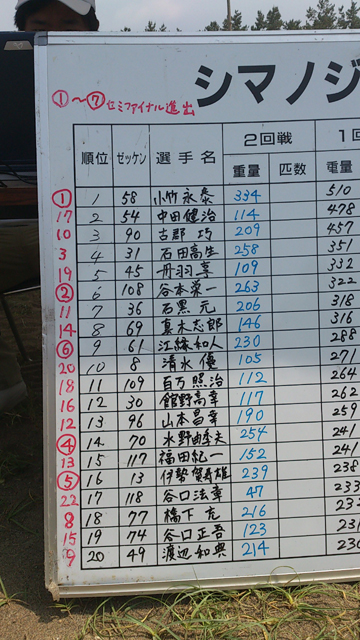 ①〜⑦セミファイナル進出
シマノジ
順位 ゼッケン 選手名 2回戦 1回
重量 匹数 重量
① 1 58 小竹永泰 334 510
17 2 54 中田健治 114 478
10 3 90 古郡巧 209 457
3 4 31 石田高生 258 351
19 5 45 丹羽享 109 332
② 6 108 谷本栄一 263 322
11 7 36 石黒元 206 318
14 8 69 真木志郎 146 316
⑥ 9 61 江縁和人 230 288
20 10 8 清水優 105 271
18 11 109 百万照治 112 264
16 12 30 館野高幸 117 262
12 13 96 山本昌幸 190 259
④ 14 70 水野由季夫 254 241
13 15 117 福田紀一 152 241
⑤ 16 13 伊勢賀寿雄 239 238
22 17 118 谷口法章 47 233
8 18 77 橋下克 216 233
15 19 74 谷口正吾 123 23
9 20 49 渡辺和典 214 230